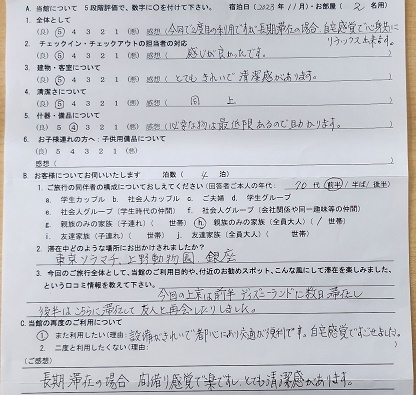 A. 当館について 5段階評価で、数字に○を付けて下さい。 宿泊日(2023年11月)・お部屋( 2 名用)
1. 全体として
(良) ⑤ 4 3 2 1 (悪) 感想(今回で2度目の利用ですが長期滞在の場合、自宅感覚で心身共に
リラックス出来ます。
2. チェックイン・チェックアウトの担当者の対応
(良) ⑤ 4 3 2 1 (悪) 感想( 感じが良かったです。 )
3. 建物・客室について
(良) ⑤ 4 3 2 1 (悪) 感想( とてもきれいで清潔感があります。 )
4. 清潔さについて
(良) ⑤ 4 3 2 1 (悪) 感想( 同 上 )
5. 什器・備品について
(良) 5 ④ 3 2 1 (悪) 感想(必要な物は最低限あるので助かります。 )
6. お子様連れの方へ:子供用備品について
(良) 5 4 3 2 1 (悪)
感想( )
B. お客様についてお伺いいたします 泊数( 4 泊)
1. ご旅行の同伴者の構成についておしえてください(回答者ご本人の年代: 70 代 前半/半ば/後半)
a. 学生カップル b. 社会人カップル c. ご夫婦 d. 学生グループ
e. 社会人グループ(学生時代の仲間) f. 社会人グループ(会社関係や同一趣味等の仲間)
g. 親族のみの家族(子連れ)( 世帯) h. 親族のみの家族(全員大人)( 1 世帯)
i. 友達家族(子連れ)( 世帯) j. 友達家族(全員大人)( 世帯)
2. 滞在中どのような場所にお出かけされましたか?
東京ソラマチ、上野動物園、銀座
3. 今回のご旅行全体として、当館のご利用目的や、付近のお勧めスポット、こんな風にして滞在を楽しみました、
という口コミ情報を教えて下さい。
今回の上京は前半ディズニーランドに数日滞在し
後半はこちらに滞在して友人と再会したりしました。
C. 当館の再度のご利用について
1. また利用したい(理由: 設備がきれいで都心にあり交通が便利です。自宅感覚ですごせました。 )
2. 二度と利用したくない(理由: )
(ご感想)
長期滞在の場合 間借り感覚で楽ですし、とても清潔感があります。